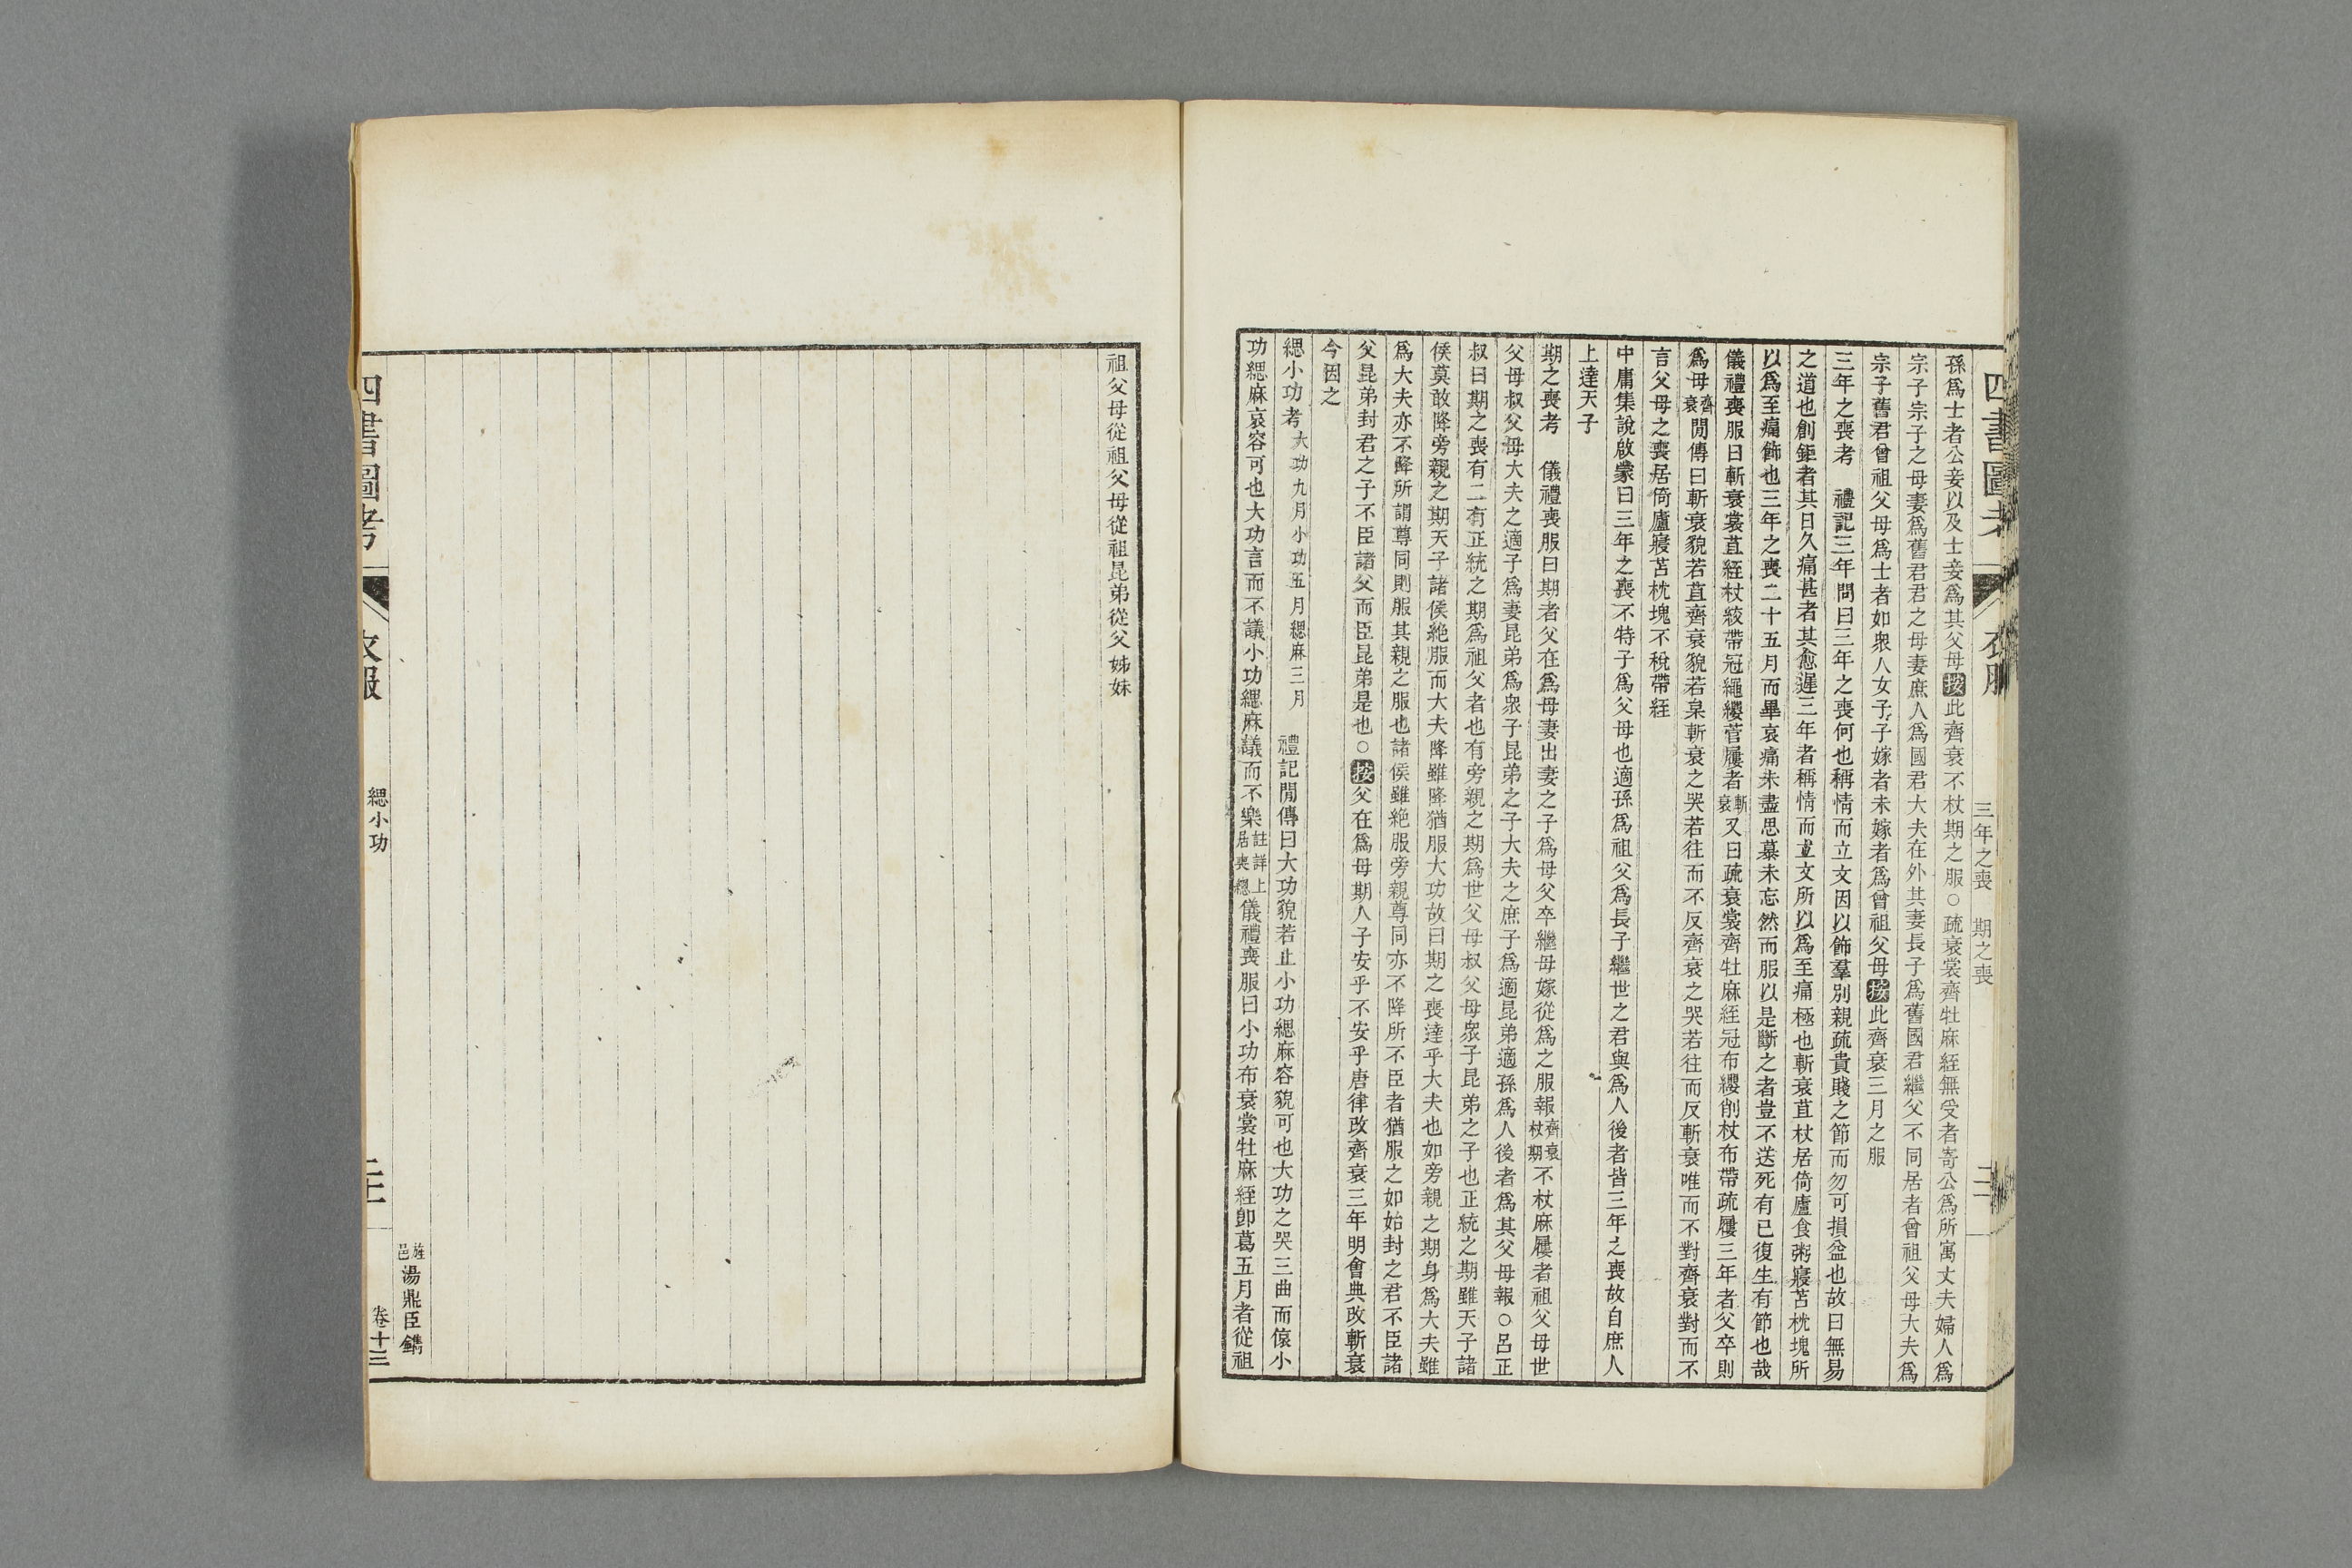 四書圖考 衣服 三年之喪 期之喪 二
孫爲士者公妾以及士妾爲其父母按此齊衰不杖期之服○疏衰裳齊牡麻絰無受者寄公爲所寓丈夫婦人爲
宗子宗子之母妻爲舊君君之母妻庶人爲國君大夫在外其妻長子爲舊國君繼父不同居者曾祖父母大夫爲
宗子舊君曾祖父母爲士者如衆人女子子嫁者未嫁者爲曾祖父母按此齊衰三月之服
三年之喪考 禮記三年問曰三年之喪何也稱情而立文因以飾羣別親疏貴賤之節而勿可損益也故曰無易
之道也創鉅者其日久痛甚者其愈遲三年者稱情而立文所以爲至痛極也斬衰苴杖居倚廬食粥寢苫枕塊所
以爲至痛飾也三年之喪二十五月而畢哀痛未盡思慕未忘然而服以是斷之者豈不送死有已復生有節也哉
儀禮喪服曰斬衰裳苴絰杖絞帶冠繩纓菅屨者斬衰又曰疏衰裳齊牡麻絰冠布纓削杖布帶疏屨三年者父卒則
爲母齊衰閒傳曰斬衰貌若苴齊衰貌若枲斬衰之哭若往而不反齊衰之哭若往而反斬衰唯而不對齊衰對而不
言父母之喪居倚廬寢苫枕塊不稅帶絰
中庸集說啟蒙曰三年之喪不特子爲父母也適孫爲祖父爲長子繼世之君與爲人後者皆三年之喪故自庶人
上達天子
期之喪考 儀禮喪服曰期者父在爲母妻出妻之子爲母父卒繼母嫁從爲之服報齊衰杖期不杖麻屨者祖父母世
父母叔父母大夫之適子爲妻昆弟爲衆子昆弟之子大夫之庶子爲適昆弟適孫爲人後者爲其父母報○呂正
叔曰期之喪有二有正統之期爲祖父者也有旁親之期爲世父母叔父母衆子昆弟之子也正統之期雖天子諸
侯莫敢降旁親之期天子諸侯絶服而大夫降雖降猶服大功故曰期之喪達乎大夫也如旁親之期身爲大夫雖
爲大夫亦不降所謂尊同則服其親之服也諸侯雖絶服旁親尊同亦不降所不臣者猶服之如始封之君不臣諸
父昆弟封君之子不臣諸父而臣昆弟是也○按父在爲母期人子安乎不安乎唐律改齊衰三年明會典改斬衰
今因之
緦小功考大功九月小功五月緦麻三月 禮記閒傳曰大功貌若止小功緦麻容貌可也大功之哭三曲而偯小
功緦麻哀容可也大功言而不議小功緦麻議而不樂註詳上居喪總儀禮喪服曰小功布衰裳牡麻絰卽葛五月者從祖
祖父母從祖父母從祖昆弟從父姊妹
旌邑湯鼎臣鐫
四書圖考 衣服 緦小功 卷十三